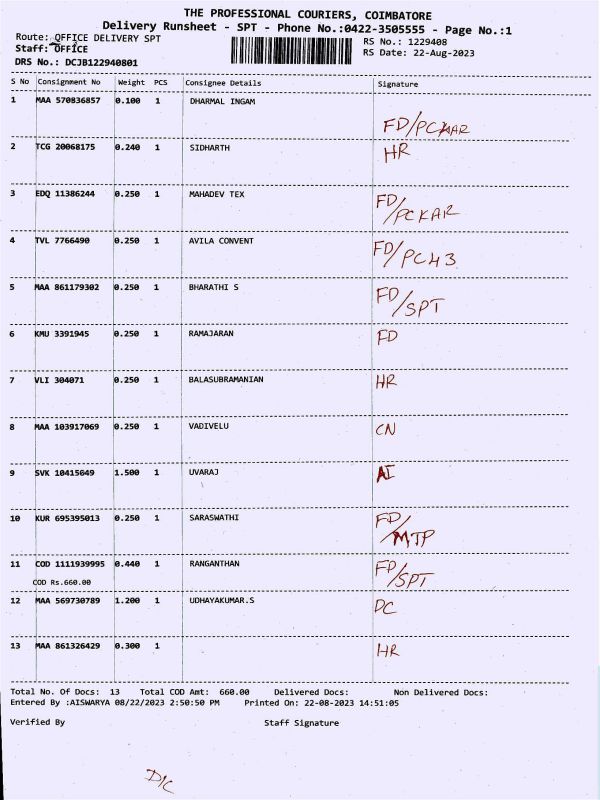 THE PROFESSIONAL COURIERS, COIMBATORE
Delivery Runsheet - SPT - Phone No.:0422-3505555 - Page No.:1
Route: OFFICE DELIVERY SPT RS No.: 1229408
Staff: OFFICE RS Date: 22-Aug-2023
DRS No.: DCJB122940801
S No Consignment No Weight PCS Consignee Details Signature
1 MAA 570836857 0.100 1 DHARMAL INGAM
FD/PCKAR
2 TCG 20068175 0.240 1 SIDHARTH HR
3 EDQ 11386244 0.250 1 MAHADEV TEX FD/PCKAR
4 TVL 7766490 0.250 1 AVILA CONVENT FD/PC43
5 MAA 861179302 0.250 1 BHARATHI S FD/SPT
6 KMU 3391945 0.250 1 RAMAJARAN FD
7 VLI 304071 0.250 1 BALASUBRAMANIAN HR
8 MAA 103917069 0.250 1 VADIVELU CN
9 SVK 10415049 1.500 1 UVARAJ AI
10 KUR 695395013 0.250 1 SARASWATHI FD/MTP
11 COD 1111939995 0.440 1 RANGANTHAN FD/SPT
COD Rs.660.00
12 MAA 569730789 1.200 1 UDHAYAKUMAR.S DC
13 MAA 861326429 0.300 1 HR
Total No. Of Docs: 13 Total COD Amt: 660.00 Delivered Docs: Non Delivered Docs:
Entered By :AISWARYA 08/22/2023 2:50:50 PM Printed On: 22-08-2023 14:51:05
Verified By Staff Signature
D/C